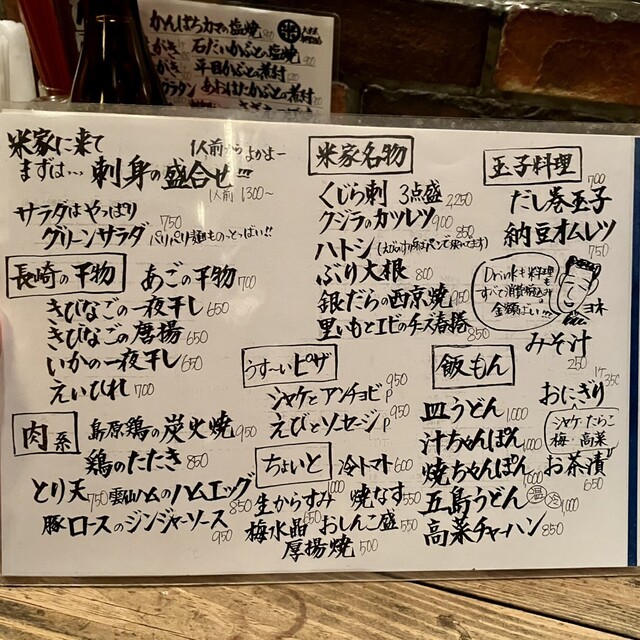 かんぱちカマの塩焼
石だいかぶとの塩焼
平目かぶとの煮付
あおはたかぶとの煮付
米家に来て
まずは… 刺身の盛合せ!!!
1人前からよかよー
1人前 1300~
サラダはやっぱり
グリーンサラダ 750
パリパリ麺ものっとっばい!!
長崎の干物
あごの干物 700
きびなごの一夜干し 650
きびなごの唐揚 650
いかの一夜干し 650
えいひれ 700
肉系
島原鶏の炭火焼 950
鶏のたたき 850
とり天 750
雲仙ハムのハムエッグ 850
豚ロースのジンジャーソース 950
米家名物
くじら刺 3点盛 2,250
クジラのカツレツ 900
ハトシ 850
(えびのすり身をパンで挟んでます)
ぶり大根 800
銀だらの西京焼 950
里いもとエビのチーズ春捲 850
うす〜いピザ
シャケとアンチョビ 950
えびとソーセージ 950
ちょいと
冷トマト 600
生からすみ 1,000
焼なす 550
梅水晶 650
おしんこ盛 550
厚揚焼 500
玉子料理
だし巻玉子 700
納豆オムレツ 750
Drinkも料理も
すべて消費税込みの
金額よぉ!!!
ヨネ
みそ汁 250
飯もん
皿うどん 1,000
汁ちゃんぽん 1,000
焼ちゃんぽん 1,000
五島うどん 温 冷 1,000
高菜チャーハン 850
おにぎり 1ケ 350
シャケ・たらこ
梅・高菜
お茶漬 650